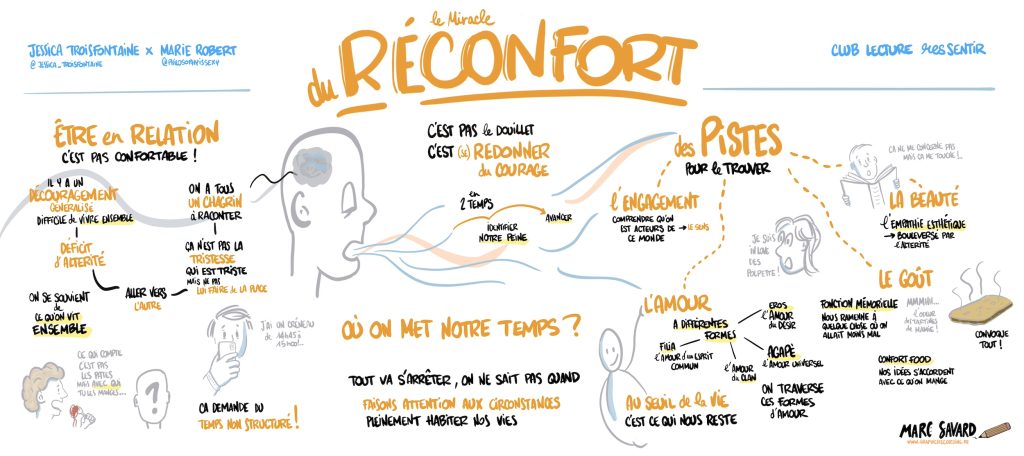 le Miracle
du RÉCONFORT
JESSICA TROISFONTAINE x MARIE ROBERT
@JESSICA_TROISFONTAINE
@PHILOSOPHYISSEXY
CLUB LECTURE resSENTIR
ÊTRE en RELATION
C'EST PAS CONFORTABLE !
IL Y A UN
DÉCOURAGEMENT
GÉNÉRALISÉ
DIFFICILE de VIVRE ENSEMBLE
DÉFICIT
d'ALTERITÉ
ON SE SOUVIENT
de
CE QU'ON VIT
ENSEMBLE
ALLER VERS
L'AUTRE
ON A TOUS
UN CHAGRIN
à RACONTER
ÇA N'EST PAS LA
TRISTESSE
QUI EST TRISTE
MAIS NE PAS
LUI FAIRE de LA PLACE
CE QUI COMPTE
C'EST PAS
LES PATES
MAIS AVEC QUI
TU LES MANGES...
?
J'AI UN CRÉNEAU
de 14H45 à
15H00!...
ÇA DEMANDE DU
TEMPS NON STRUCTURÉ !
C'EST PAS le DOUILLET
C'EST (SE) REDONNER
du COURAGE
en
2 TEMPS
IDENTIFIER
NOTRE PEINE
AVANCER
OÙ ON MET NOTRE TEMPS ?
TOUT VA S'ARRÊTER, ON NE SAIT PAS QUAND
FAISONS ATTENTION AUX CIRCONSTANCES
PLEINEMENT HABITER NOS VIES
des PISTES
POUR le TROUVER
l'ENGAGEMENT
COMPRENDRE QU'ON
EST ACTEURS DE → LE SENS
CE MONDE
JE SUIS
IN LOVE
DES
POUPETTE !
ÇA NE ME CONCERNE PAS
MAIS ÇA ME TOUCHE!..
LA BEAUTÉ
l'EMPATHIE ESTHÉTIQUE
→ BOULEVERSÉ PAR
l'ALTERITÉ
LE GOÛT
FONCTION MÉMORIELLE
NOUS RAMENNE À
QUELQUE CHOSE OÙ ON
ALLAIT MOINS MAL
MMMHH...
l'ODEUR
des TARTINES
de MAMIE !
CONVOQUE
TOUT !
CONFORT FOOD
NOS IDÉES S'ACCORDENT
AVEC CE QU'ON MANGE
L'AMOUR
A DIFFÉRENTES
FORMES
EROS
l'AMOUR
DU DÉSIR
FILIA
l'AMOUR d'UN ESPRIT
COMMUN
l'AMOUR
du CLAN
AGAPÈ
l'AMOUR UNIVERSEL
ON TRAVERSE
CES FORMES
D'AMOUR
AU SEUIL de LA VIE
C'EST CE QUI NOUS RESTE
MARC SAVARD